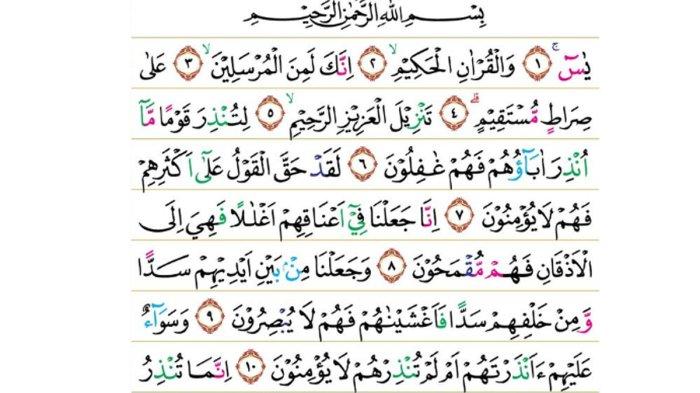 بِسْمِ اللهِ الرَّحْمٰنِ الرَّحِيْمِ
يٰسٓ ۚ ﴿١﴾ وَالْقُرْاٰنِ الْحَكِيْمِ ۙ ﴿٢﴾ اِنَّكَ لَمِنَ الْمُرْسَلِيْنَ ۙ ﴿٣﴾ عَلٰى
صِرَاطٍ مُّسْتَقِيْمٍ ۗ ﴿٤﴾ تَنْزِيْلَ الْعَزِيْزِ الرَّحِيْمِ ۙ ﴿٥﴾ لِتُنْذِرَ قَوْمًا مَّآ
اُنْذِرَ اٰبَاۤؤُهُمْ فَهُمْ غٰفِلُوْنَ ﴿٦﴾ لَقَدْ حَقَّ الْقَوْلُ عَلٰٓى اَكْثَرِهِمْ
فَهُمْ لَا يُؤْمِنُوْنَ ﴿٧﴾ اِنَّا جَعَلْنَا فِيْٓ اَعْنَاقِهِمْ اَغْلٰلًا فَهِيَ اِلَى
الْاَذْقَانِ فَهُمْ مُّقْمَحُوْنَ ﴿٨﴾ وَجَعَلْنَا مِنْۢ بَيْنِ اَيْدِيْهِمْ سَدًّا
وَّمِنْ خَلْفِهِمْ سَدًّا فَاَغْشَيْنٰهُمْ فَهُمْ لَا يُبْصِرُوْنَ ﴿٩﴾ وَسَوَاۤءٌ
عَلَيْهِمْ ءَاَنْذَرْتَهُمْ اَمْ لَمْ تُنْذِرْهُمْ لَا يُؤْمِنُوْنَ ﴿١٠﴾ اِنَّمَا تُنْذِرُ